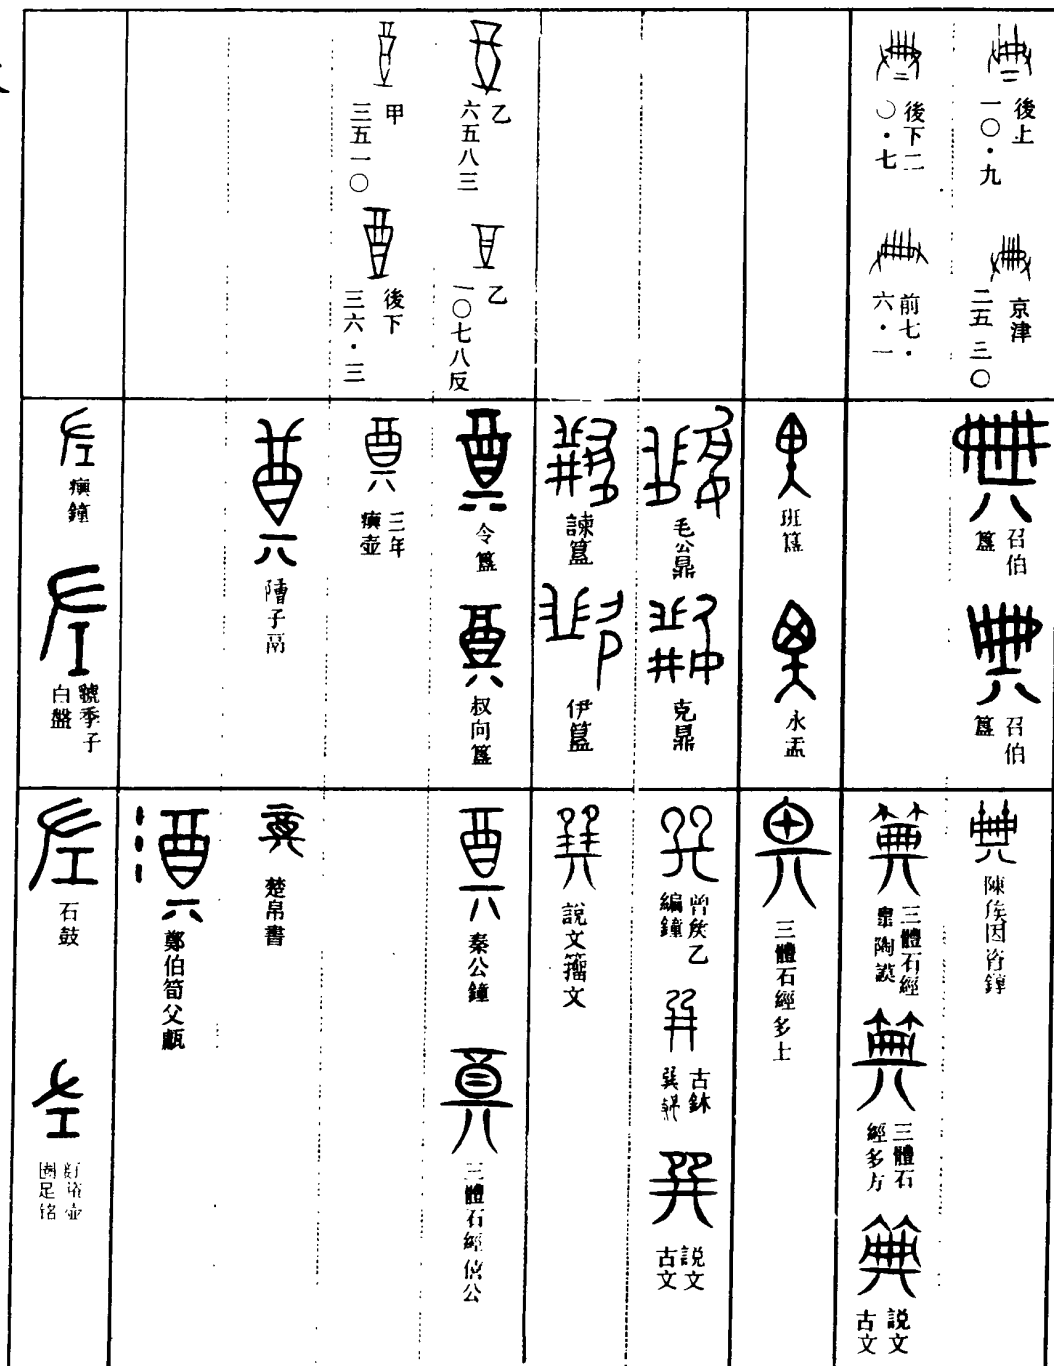 後上一〇·九
京津二五三〇
後下二〇·七
前七·六·一
乙六五八三
乙一〇七八反
甲三五一〇
後下三六·三
召伯簋
召伯簋
班簋
永盂
毛公鼎
克鼎
諫簋
伊簋
令簋
叔向簋
三年𤼈壺
子鬲
𤼈鐘
虢季子白盤
陳侯因𬫆錞
三體石經皋陶謨
三體石經多方
說文古文
三體石經多士
曾侯乙編鐘
古鉢
說文古文
說文籀文
秦公鐘
三體石經僖公
楚帛書
鄭伯筍父甗
石鼓
圈足銘